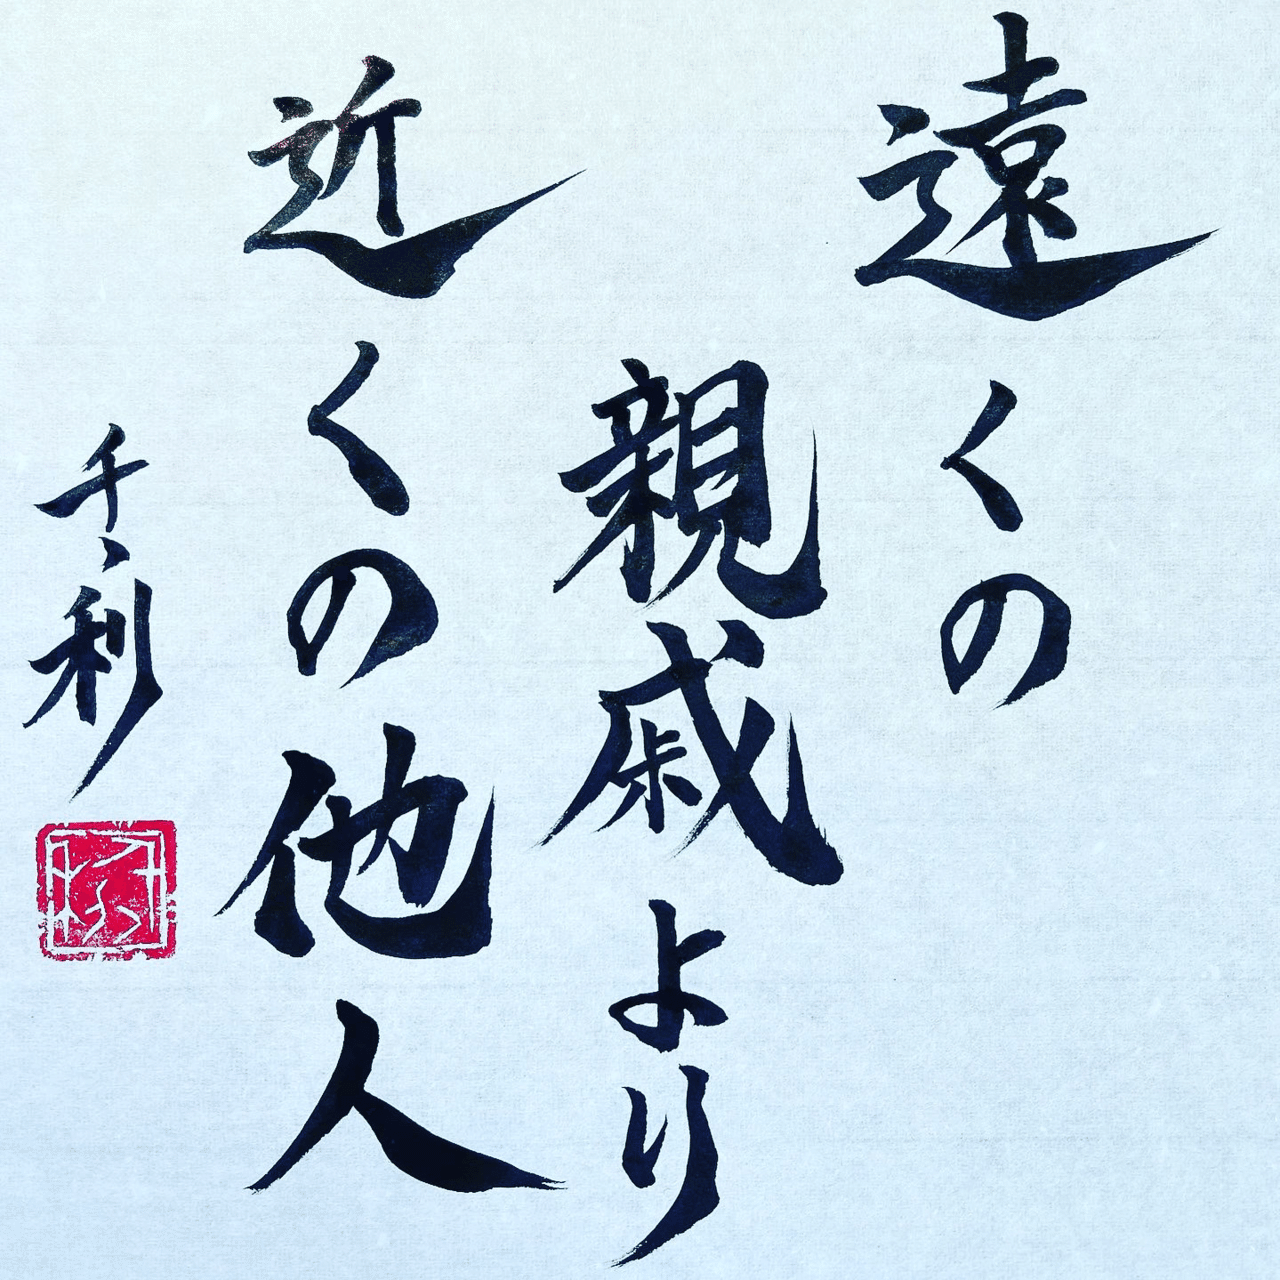 遠くの
親戚より
近くの他人
千々利